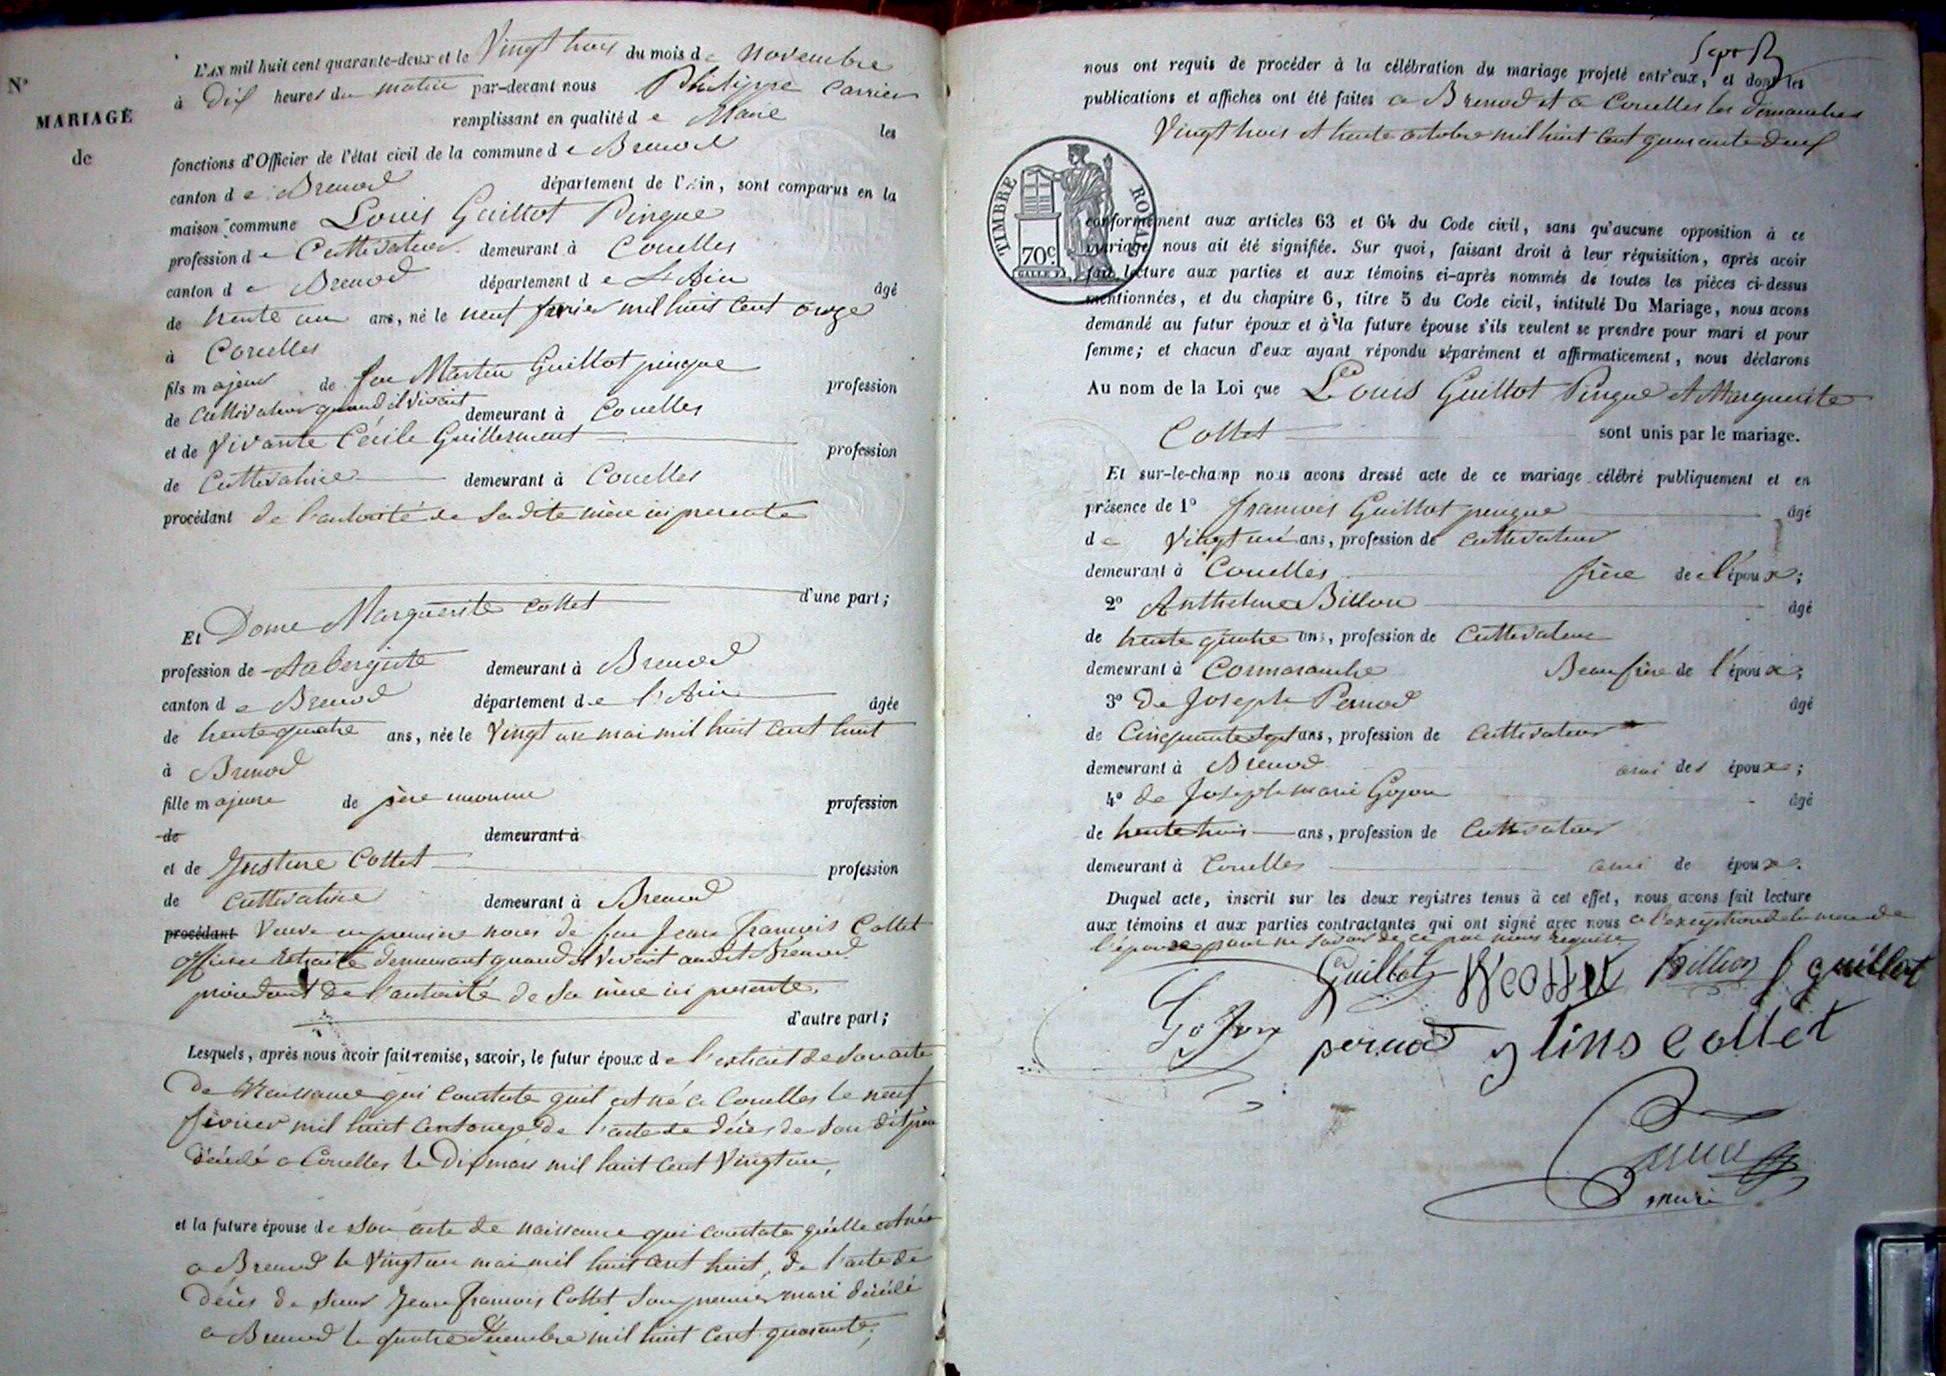 N°
MARIAGE
de
L'AN mil huit cent quarante-deux et le Vingt trois du mois de novembre
à Dix heures du matin par-devant nous Philippe Carrier
remplissant en qualité de Maire les
fonctions d'Officier de l'état civil de la commune de Brenod
canton de Brenod département de l'Ain, sont comparus en la
maison commune Louis Guillot Pingue
profession de Cultivateur demeurant à Corcelles
canton de Brenod département de L'Ain âgé
de trente un ans, né le neuf fevrier mil huit cent onze
à Corcelles
fils majeur de feu Martin Guillot pingue profession
de Cultivateur quand il vivait demeurant à Corcelles
et de Vivante Cécile Guillermet profession
de Cultivatrice demeurant à Corcelles
procédant de l'autorité de Sadite mère ici presente
d'une part;
Et Dame Marguerite Collet
profession de Aubergiste demeurant à Brenod
canton de Brenod département de l'Ain âgée
de trente quatre ans, née le Vingt un mai mil huit cent huit
à Brenod
fille majeure de père inconnu profession
de demeurant à
et de Justine Collet profession
de Cultivatrice demeurant à Brenod
procédant Veuve en premiere noces de feu Jean François Collet
officier retraité demeurant quand il vivait audit Brenod
procédant de l'autorité de Sa mère ici presente.
d'autre part;
Lesquels, après nous avoir fait remise, savoir, le futur époux de l'extrait de Son acte
de Naissance qui Constate qu'il est né a Corcelles le neuf
février mil huit cent onze, de l'acte de décès de Son dit père
décédé a Corcelles le Dix mars mil huit cent Vingt un,
et la future épouse de son acte de naissance qui constate qu'elle est née
a Brenod le Vingt un mai mil huit cent huit, de l'acte de
décès de Sieur Jean François Collet Son premier mari décédé
a Brenod le quatre décembre mil huit cent quarante;
Sept
nous ont requis de procéder à la célébration du mariage projeté entr'eux, et dont les
publications et affiches ont été faites a Brenod et a Corcelles les dimanches
Vingt trois et trente octobre mil huit cent quarante deux
TIMBRE ROYAL
70c.
conformément aux articles 63 et 64 du Code civil, sans qu'aucune opposition à ce
mariage nous ait été signifiée. Sur quoi, faisant droit à leur réquisition, après avoir
fait lecture aux parties et aux témoins ci-après nommés de toutes les pièces ci-dessus
mentionnées, et du chapitre 6, titre 5 du Code civil, intitulé Du Mariage, nous avons
demandé au futur époux et à la future épouse s'ils veulent se prendre pour mari et pour
femme; et chacun d'eux ayant répondu séparément et affirmativement, nous déclarons
Au nom de la Loi que Louis Guillot Pingue et Marguerite
Collet sont unis par le mariage.
Et sur-le-champ nous avons dressé acte de ce mariage célébré publiquement et en
présence de 1° francois Guillot pingue âgé
de Vingt six ans, profession de cultivateur
demeurant à Corcelles frère de l'époux;
2° Anthelme Billion âgé
de trente quatre ans, profession de Cultivateur
demeurant à Cormaranche Beaufrère de l'époux;
3° de Joseph Pernod âgé
de Cinquante Sept ans, profession de cultivateur
demeurant à Brenod ami des époux;
4° de Joseph marie Gojon âgé
de trente trois ans, profession de Cultivateur
demeurant à Corcelles ami de époux.
Duquel acte, inscrit sur les deux registres tenus à cet effet, nous avons fait lecture
aux témoins et aux parties contractantes qui ont signé avec nous a l'exception de la mere de
l'époux pour ne Savoir de ce par nous requise
Guillot Collet Billion f guillot
Gojon pernod Collet
Carrier
maire